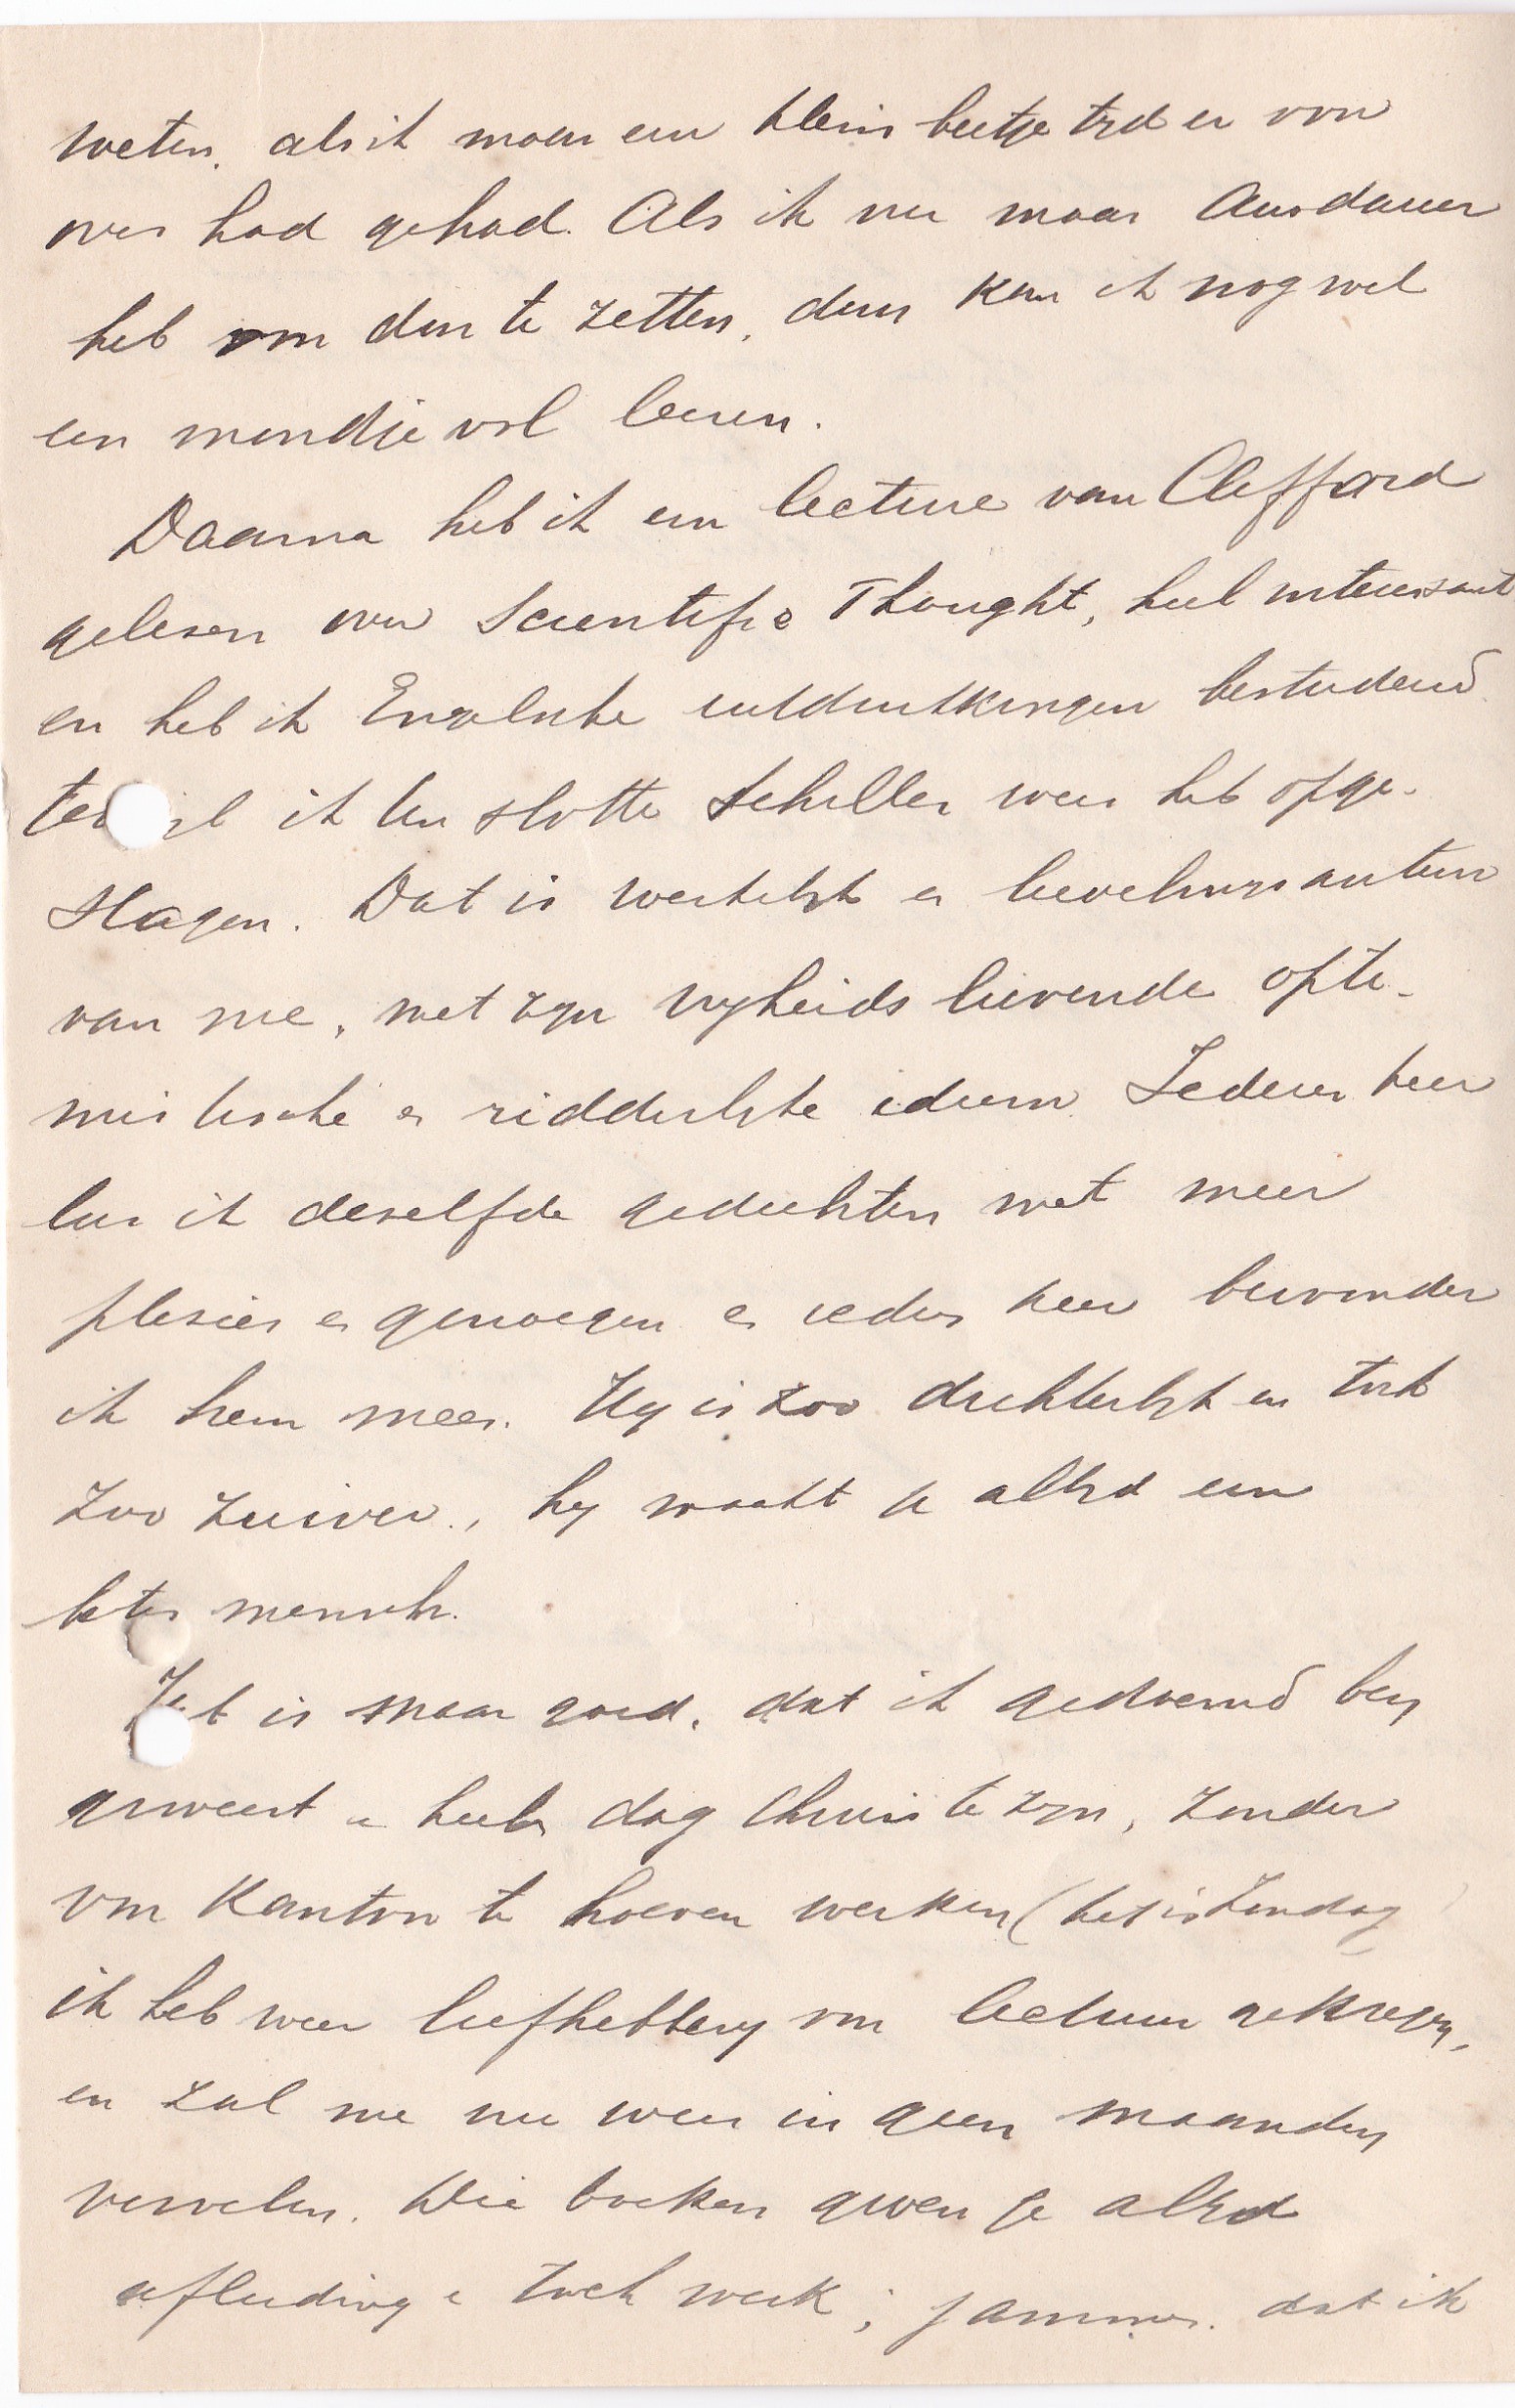 weten, als ik maar een klein beetje tijd er voor
over had gehad. Als ik nu maar Ausdauer
heb om door te zetten, dan kan ik nog wel
een mondje vol leeren.
Daarna heb ik een lecture van Clifford
gelezen over Scientific Thought, heel interessant
en heb ik Engelsche uitdrukkingen bestudeerd
terwijl ik ten slotte Schiller weer heb opge-
slagen. Dat is werkelijk er lievelingsauteur
van me, met zijn vrijheids lievende opti-
mistische en ridderlijke ideeen. Iedere keer
lees ik dezelfde gedichten met meer
plesier en genoegen en iedere keer bewonder
ik hem meer. Hij is zoo dichterlijk en toch
zoo zuiver, hij maakt je altijd een
beter mensch.
Het is maar goed, dat ik gedoemd ben
geweest een heele dag thuis te zijn, zonder
voor Kantoor te hoeven werken (het is Zondag)
ik heb weer liefhebberij voor lectuur gekregen,
en zal me nu weer in geen maanden
vervelen. Die boeken geven je altijd
afleiding en toch werk; jammer dat ik